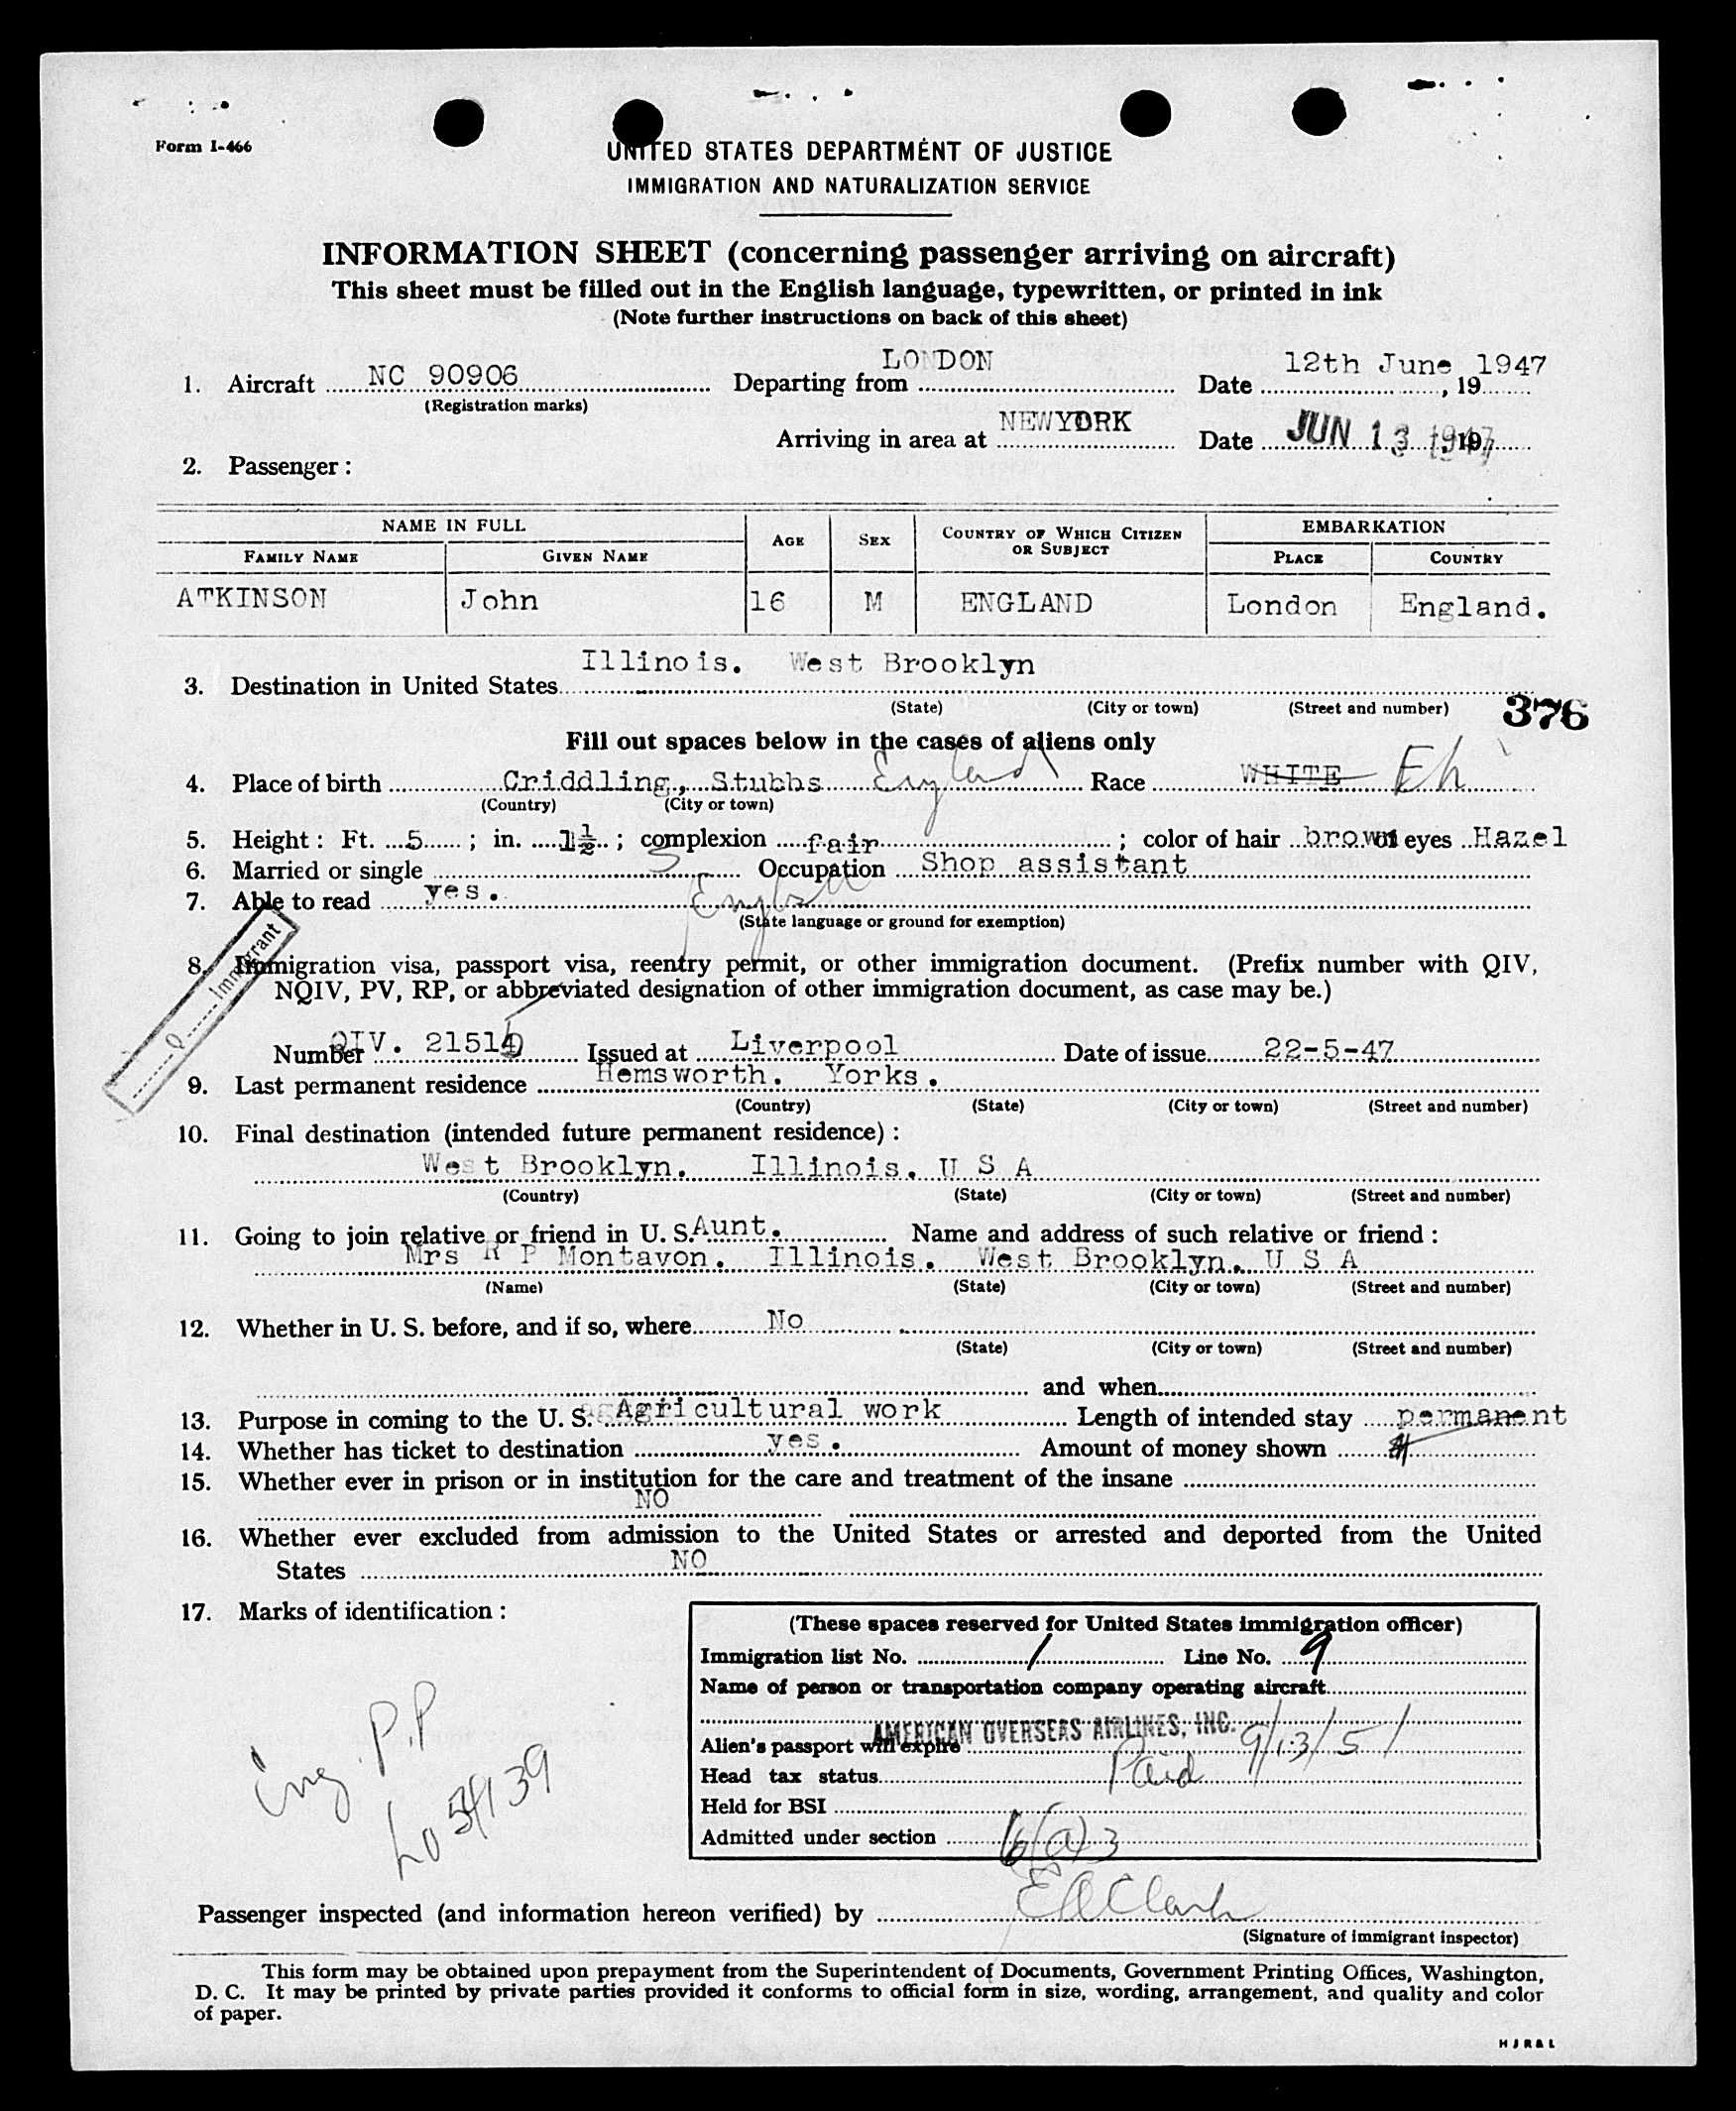 Form I-466
UNITED STATES DEPARTMENT OF JUSTICE
IMMIGRATION AND NATURALIZATION SERVICE
INFORMATION SHEET (concerning passenger arriving on aircraft)
This sheet must be filled out in the English language, typewritten, or printed in ink
(Note further instructions on back of this sheet)
1. Aircraft NC 90906 Departing from LONDON Date 12th June 1947, 19
(Registration marks)
Arriving in area at NEWYORK Date JUN 13 1947, 19
2. Passenger:
NAME IN FULL AGE SEX COUNTRY OF WHICH CITIZEN OR SUBJECT EMBARKATION
FAMILY NAME GIVEN NAME PLACE COUNTRY
ATKINSON John 16 M ENGLAND London England.
3. Destination in United States Illinois. West Brooklyn
(State) (City or town) (Street and number)
376
Fill out spaces below in the cases of aliens only
4. Place of birth Criddling, Stubbs England Race WHITE Eh
(Country) (City or town)
5. Height: Ft. 5 ; in. 1½ ; complexion fair ; color of hair brown eyes Hazel
6. Married or single S Occupation Shop assistant
7. Able to read yes. English
(State language or ground for exemption)
Q Immigrant
8. Immigration visa, passport visa, reentry permit, or other immigration document. (Prefix number with QIV,
NQIV, PV, RP, or abbreviated designation of other immigration document, as case may be.)
Number QIV. 2151 Issued at Liverpool Date of issue 22-5-47
9. Last permanent residence Hemsworth. Yorks.
(Country) (State) (City or town) (Street and number)
10. Final destination (intended future permanent residence):
West Brooklyn. Illinois. U S A
(Country) (State) (City or town) (Street and number)
11. Going to join relative or friend in U. S. Aunt. Name and address of such relative or friend:
Mrs R P Montavon. Illinois. West Brooklyn. U S A
(Name) (State) (City or town) (Street and number)
12. Whether in U. S. before, and if so, where No
(State) (City or town) (Street and number)
and when
13. Purpose in coming to the U. S. Agricultural work Length of intended stay permanent
14. Whether has ticket to destination yes. Amount of money shown
15. Whether ever in prison or in institution for the care and treatment of the insane
NO
16. Whether ever excluded from admission to the United States or arrested and deported from the United
States NO
17. Marks of identification:
Eng. P.P
Lo 54139
(These spaces reserved for United States immigration officer)
Immigration list No. 1 Line No. 9
Name of person or transportation company operating aircraft
AMERICAN OVERSEAS AIRLINES, INC.
Alien's passport will expire 9/13/51
Head tax status Paid
Held for BSI
Admitted under section 6(a)3
Passenger inspected (and information hereon verified) by E A Clark
(Signature of immigrant inspector)
This form may be obtained upon prepayment from the Superintendent of Documents, Government Printing Offices, Washington,
D. C. It may be printed by private parties provided it conforms to official form in size, wording, arrangement, and quality and color
of paper.
H J R & L